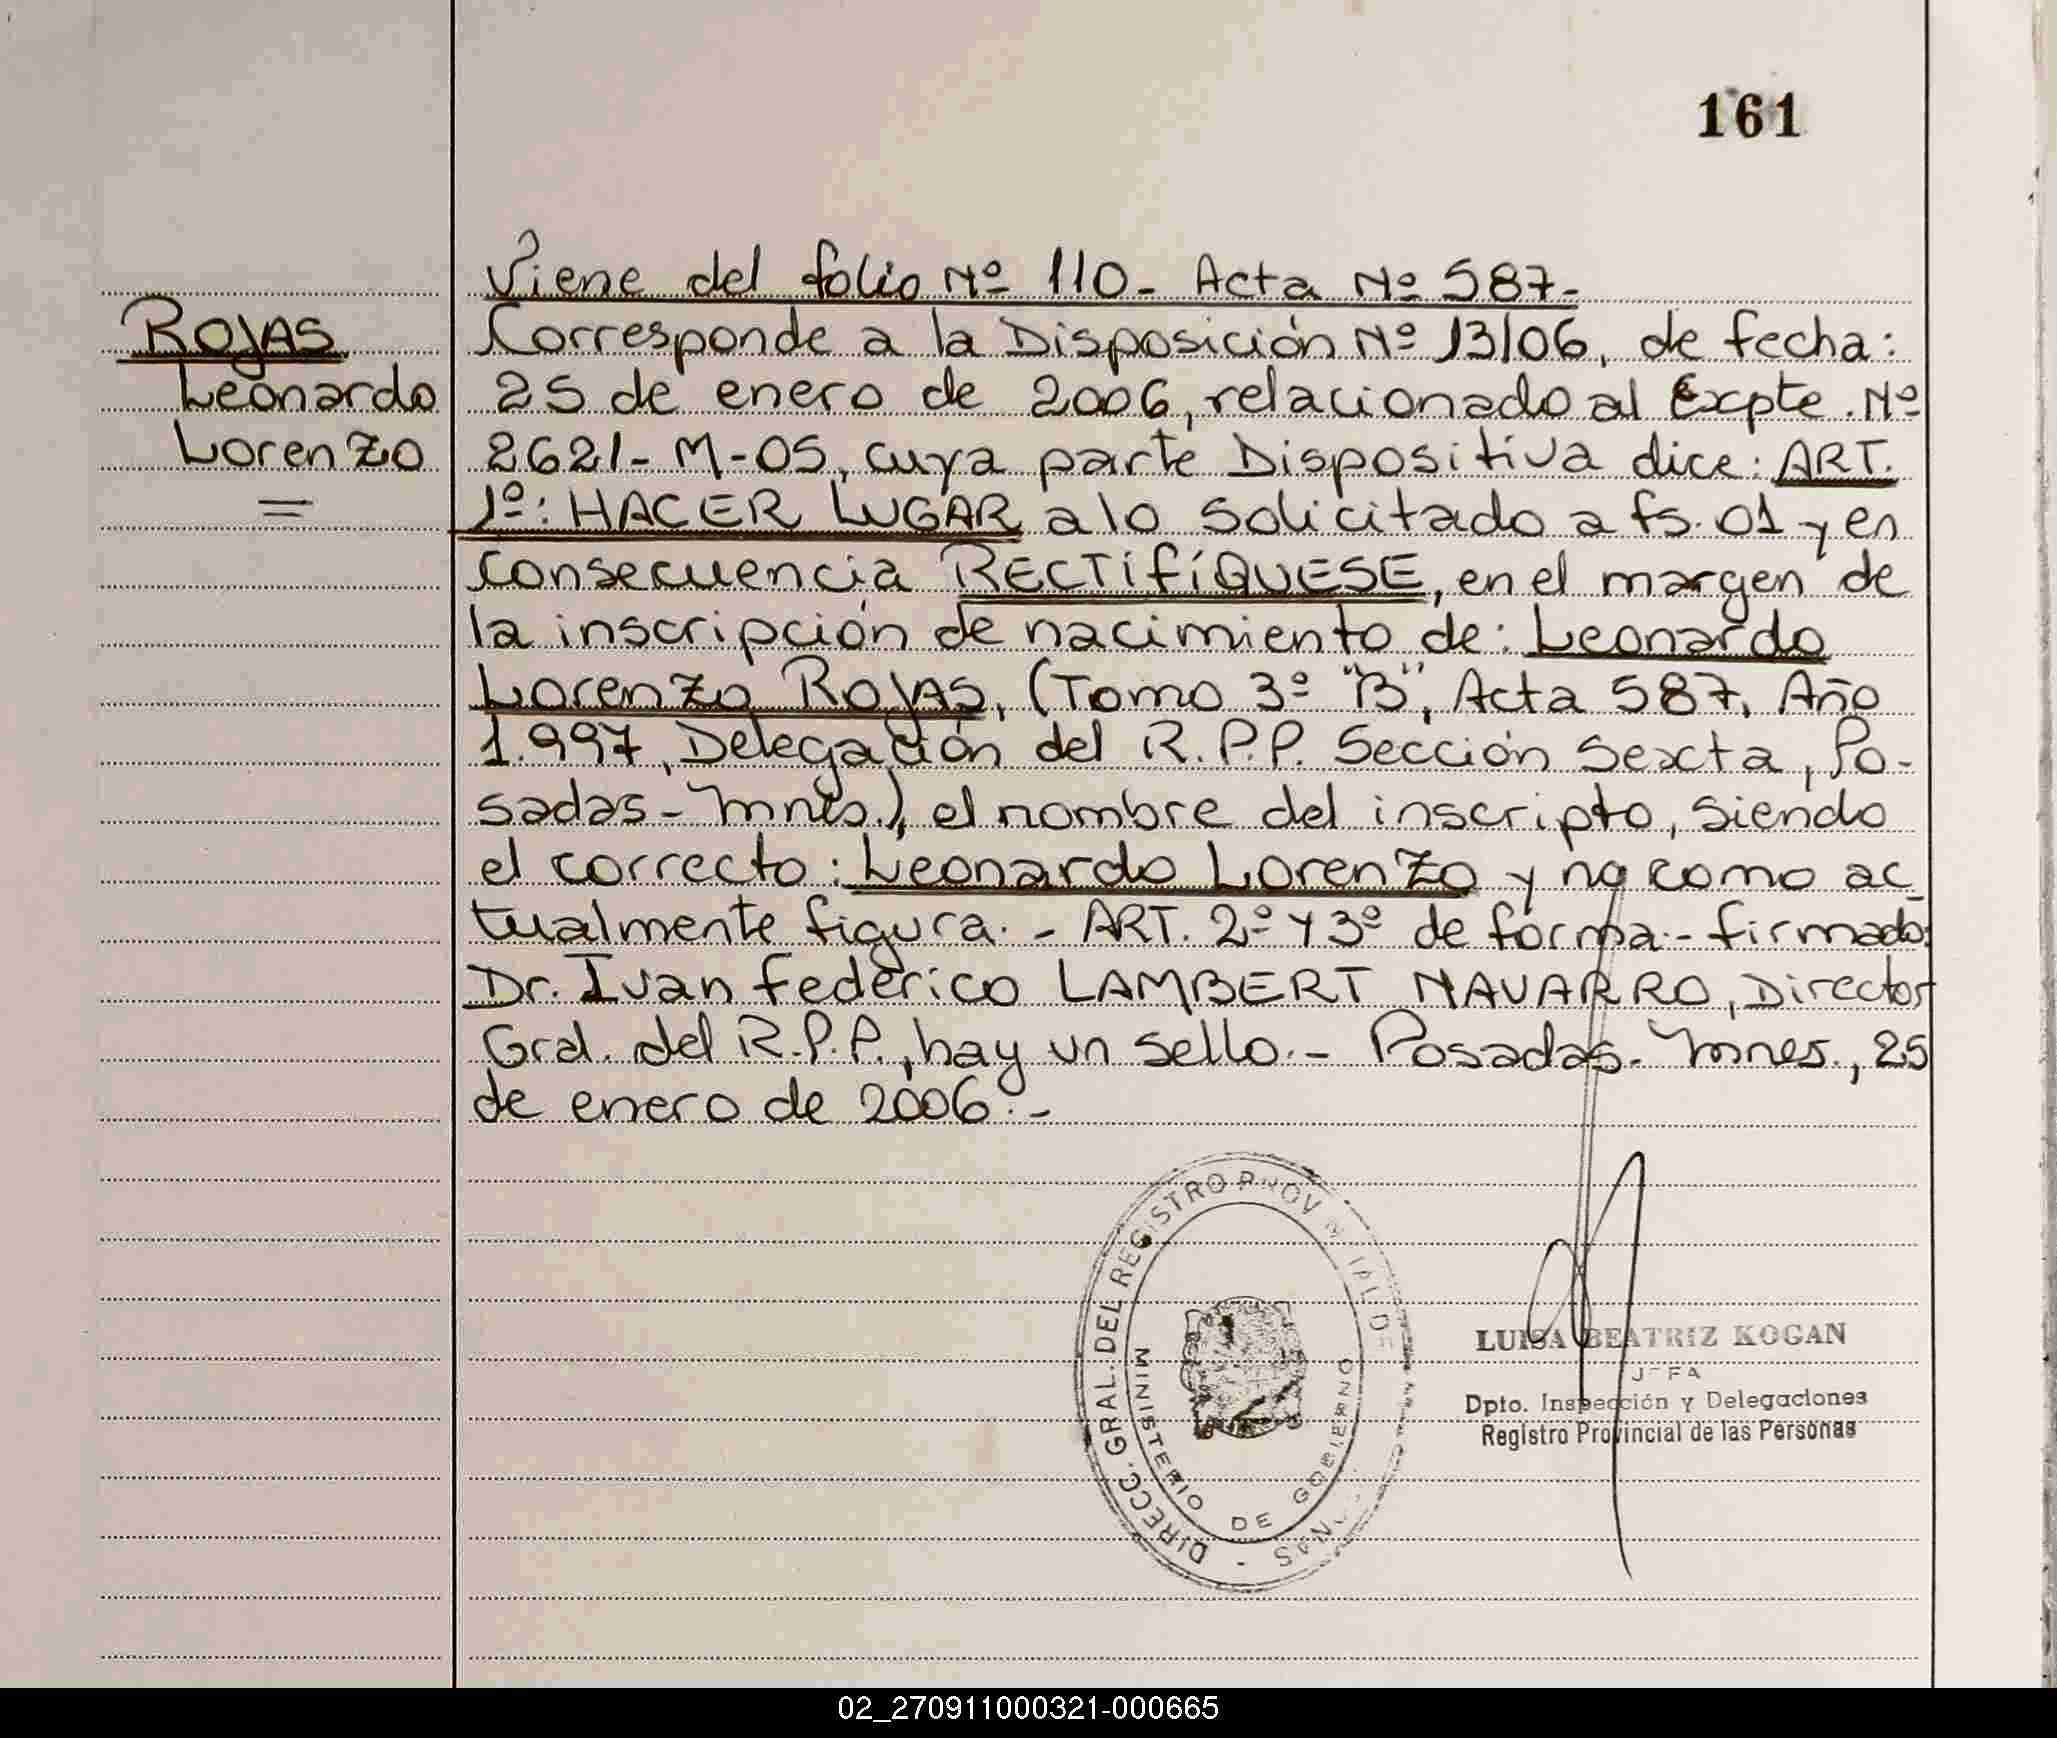 161
Viene del folio Nº 110- Acta Nº 587-
ROJAS
Leonardo
Lorenzo
=
Corresponde a la Disposición Nº 13/06, de fecha:
25 de enero de 2006, relacionado al Expte. Nº
2621-M-05, cuya parte Dispositiva dice: ART.
1º: HACER LUGAR a lo solicitado a fs. 01 y en
consecuencia RECTIFÍQUESE, en el margen de
la inscripción de nacimiento de: Leonardo
Lorenzo ROJAS, (Tomo 3º "B", Acta 587, Año
1.997, Delegación del R.P.P. Sección Sexta, Po-
sadas-Mnes.), el nombre del inscripto, siendo
el correcto: Leonardo Lorenzo y no como ac-
tualmente figura.- ART. 2º y 3º de forma.- firmado:
Dr. Ivan Federico LAMBERT NAVARRO, Director
Gral. del R.P.P., hay un sello.- Posadas-Mnes., 25
de enero de 2006.-
DIRECC. GRAL. DEL REGISTRO
MINISTERIO DE GOBIERNO
LUISA BEATRIZ KOGAN
JEFA
Dpto. Inspección y Delegaciones
Registro Provincial de las Personas
02_270911000321-000665